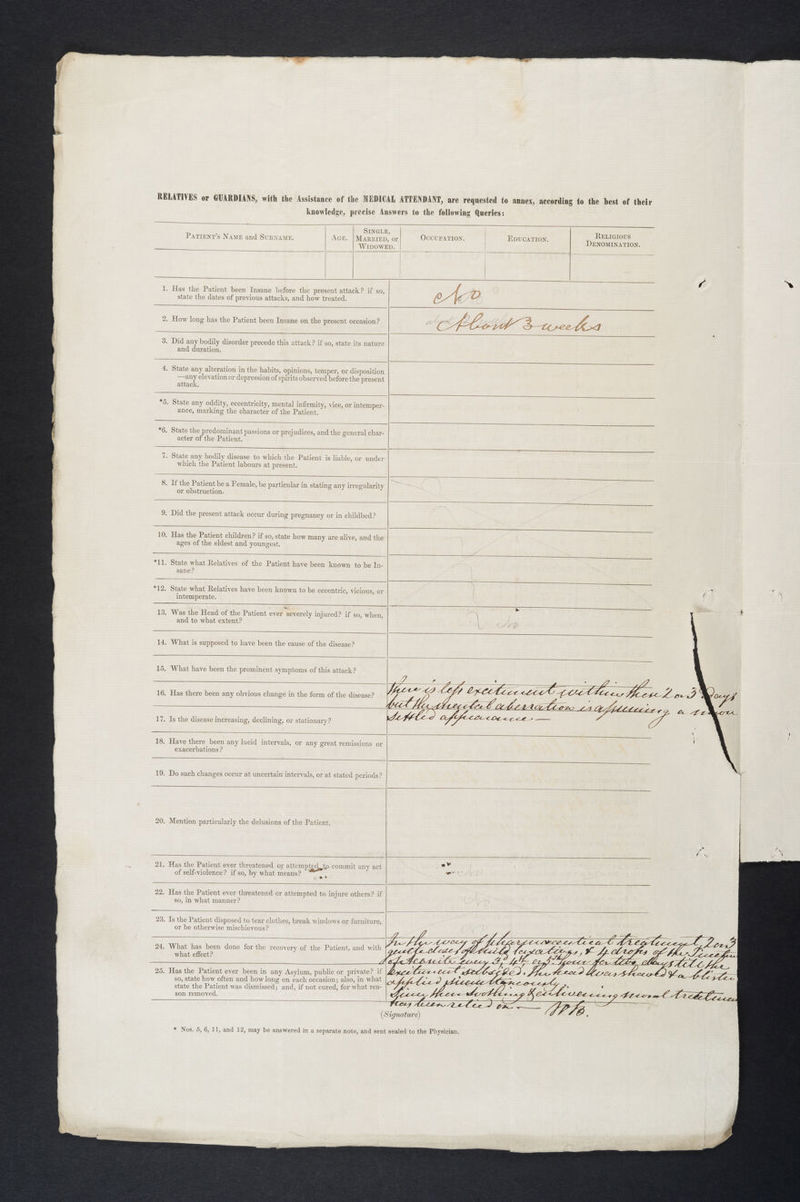 RELATIVES or GUARDIANS, with the Assistance of the MEDICAL ATTENDANT, are requested to annex, according to the best of their
knowledge, precise Answers to the following Queries:
PATIENT'S NAME and SURNAME.
AGE.
SINGLE,
MARRIED, or
WIDOWED.
OCCUPATION.
EDUCATION.
RELIGIOUS
DENOMINATION.
1. Has the Patient been Insane before the present attack? if so,
state the dates of previous attacks, and how treated.
No
2. How long has the Patient been Insane on the present occasion?
About 3 weeks
3. Did any bodily disorder precede this attack? if so, state its nature
and duration.
4. State any alteration in the habits, opinions, temper, or disposition
—any elevation or depression of spirits observed before the present
attack.
*5. State any oddity, eccentricity, mental infirmity, vice, or intemper-
ance, marking the character of the Patient.
*6. State the predominant passions or prejudices, and the general char-
acter of the Patient.
7. State any bodily disease to which the Patient is liable, or under
which the Patient labours at present.
8. If the Patient be a Female, be particular in stating any irregularity
or obstruction.
9. Did the present attack occur during pregnancy or in childbed?
10. Has the Patient children? if so, state how many are alive, and the
ages of the eldest and youngest.
*11. State what Relatives of the Patient have been known to be In-
sane?
*12. State what Relatives have been known to be eccentric, vicious, or
intemperate.
13. Was the Head of the Patient ever severely injured? if so, when,
and to what extent?
14. What is supposed to have been the cause of the disease?
15. What have been the prominent symptoms of this attack?
16. Has there been any obvious change in the form of the disease?
There is less excitement within these 2 or 3 Days
but the mental aberration is assuming a more
settled appearance.—
17. Is the disease increasing, declining, or stationary?
18. Have there been any lucid intervals, or any great remissions or
exacerbations?
19. Do such changes occur at uncertain intervals, or at stated periods?
20. Mention particularly the delusions of the Patient.
21. Has the Patient ever threatened or attempted to commit any act
of self-violence? if so, by what means?
22. Has the Patient ever threatened or attempted to injure others? if
so, in what manner?
23. Is the Patient disposed to tear clothes, break windows or furniture,
or be otherwise mischievous?
24. What has been done for the recovery of the Patient, and with
what effect?
In the way of pharmaceutical treatment 2 or 3
gentle doses of mild laxatives, & 4 drops of the Tincture
of Aconite every 3d, 4th or 5th hour for days till the
excitement subsided. The head was shaved & a blister
applied simultaneously.
Since then soothing & enlivening moral treatment
has been relied on.—
25. Has the Patient ever been in any Asylum, public or private? if
so, state how often and how long on each occasion; also, in what
state the Patient was dismissed; and, if not cured, for what rea-
son removed.
(Signature)
* Nos. 5, 6, 11, and 12, may be answered in a separate note, and sent sealed to the Physician.